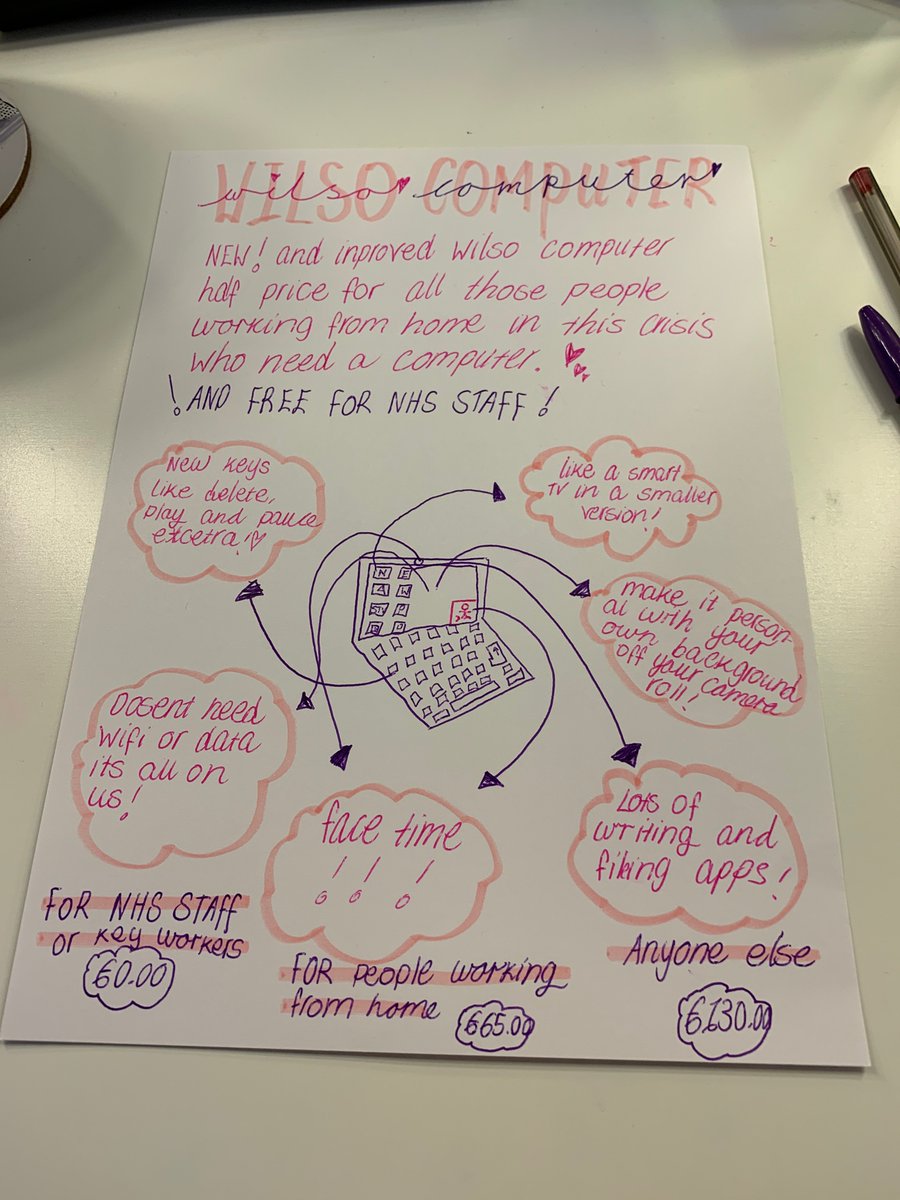 WILSO COMPUTER
wilso computer
NEW! and inproved wilso computer
half price for all those people
working from home in this crisis
who need a computer.
! AND FREE FOR NHS STAFF !
New keys
like delete,
play and pause
excetra!
like a smart
TV in a smaller
version!
make it person-
al with your
own background
off your camera
roll!
Dosent need
wifi or data
its all on
us!
face time
! ! !
Lots of
writing and
filing apps!
FOR NHS STAFF
or key workers
£0.00
FOR people working
from home
£65.00
Anyone else
£130.00